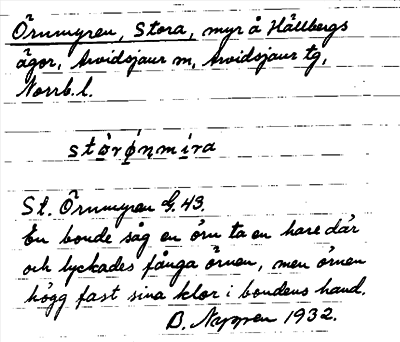 Örnmyren, Stora, myr å Hällbergs
ägor, Arvidsjaur sn, Arvidsjaur tg,
Norrb. l.
stòrǿṇmìra
St. Örnmyren G. 43.
En bonde såg en örn ta en hare där
och lyckades fånga örnen, men örnen
högg fast sina klor i bondens hand.
B. Nyren 1932.